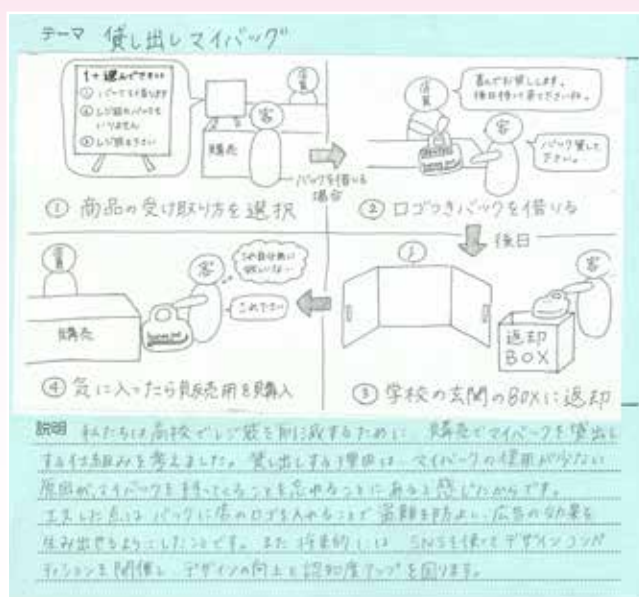 テーマ 貸し出しマイバッグ
1つ選んで下さい
① バッグを借ります
② レジ袋もバッグも
いりません
③ レジ袋下さい
店員
客
購売
バックを借りる
場合
① 商品の受け取り方を選択
店員
喜んでお貸しします。
後日持って来てくださいね。
客
バック貸して
下さい。
② ロゴつきバックを借りる
後日
客
返却
BOX
③ 学校の玄関のBOXに返却
客
これ下さい
購売
④ 気に入ったら販売用を購入
説明 私たちは高校でレジ袋を削減するために 購売でマイバックを貸出し
する仕組みを考えました。貸し出しする理由は、マイバックの使用が少ない
原因が、マイバックを持ってくることを忘れることにあると感じたからです。
工夫した点は バックに店のロゴを入れることで 盗難を防止し、広告の効果を
生み出せるようにしたことです。また 将来的には SNSを使ってデザインコンペ
ティションを開催し デザインの向上と認知度アップを図ります。